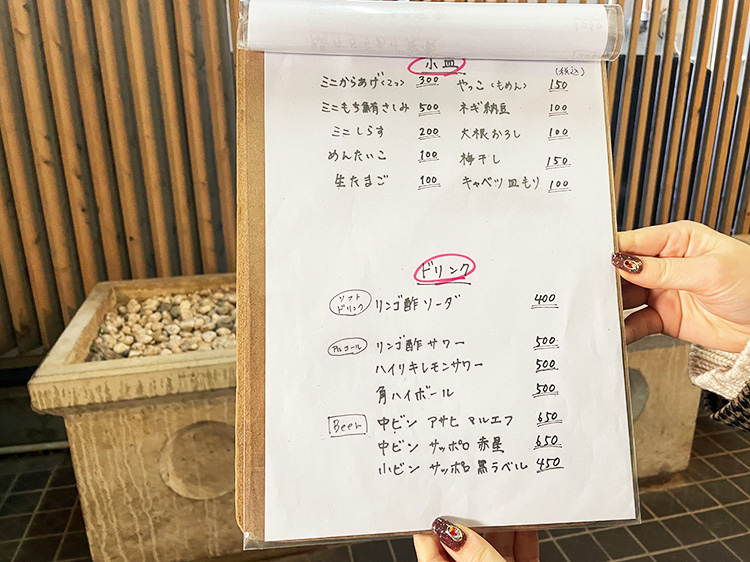 小皿
(税込)
ミニからあげ〈2コ〉 300 やっこ〈もめん〉 150
ミニもち鮪さしみ 500 ネギ納豆 100
ミニしらす 200 大根おろし 100
めんたいこ 100 梅干し 150
生たまご 100 キャベツ皿もり 100
ドリンク
ソフトドリンク リンゴ酢ソーダ 400
アルコール リンゴ酢サワー 500
ハイリキレモンサワー 500
角ハイボール 500
Beer 中ビン アサヒ マルエフ 650
中ビン サッポロ 赤星 650
小ビン サッポロ 黒ラベル 450